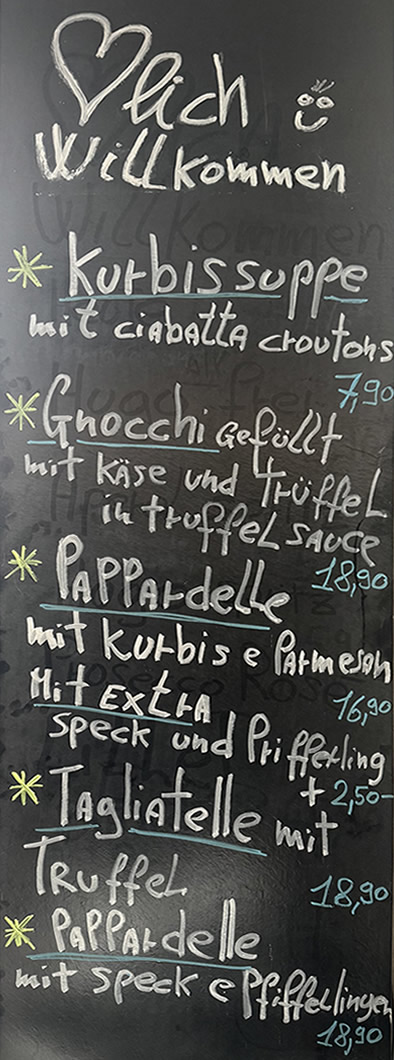 ♡lich
Willkommen
* Kurbissuppe
mit ciabatta croutons
7,90
* Gnocchi Gefüllt
mit Käse und Trüffel
in truffel sauce
18,90
* Pappardelle
mit Kurbis e Parmesan
16,90
Mit extra
speck und Prifferling
+ 2,50-
* Tagliatelle mit
Truffel
18,90
* Pappardelle
mit speck e Pfiffellingen
18,90